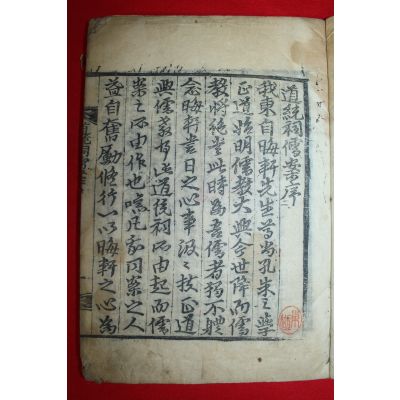 道統祠儒案序
我東自晦軒先生尊尚孔朱之學
正道始明儒教大興今世降而儒
教將絶當此時爲吾儒者獨不體
念晦軒當日之心事汲〻扶正道
興儒教乎此道統祠所由起而儒
案之所由作也噫凡我同案之人
益自奮勵修行一以晦軒之心爲